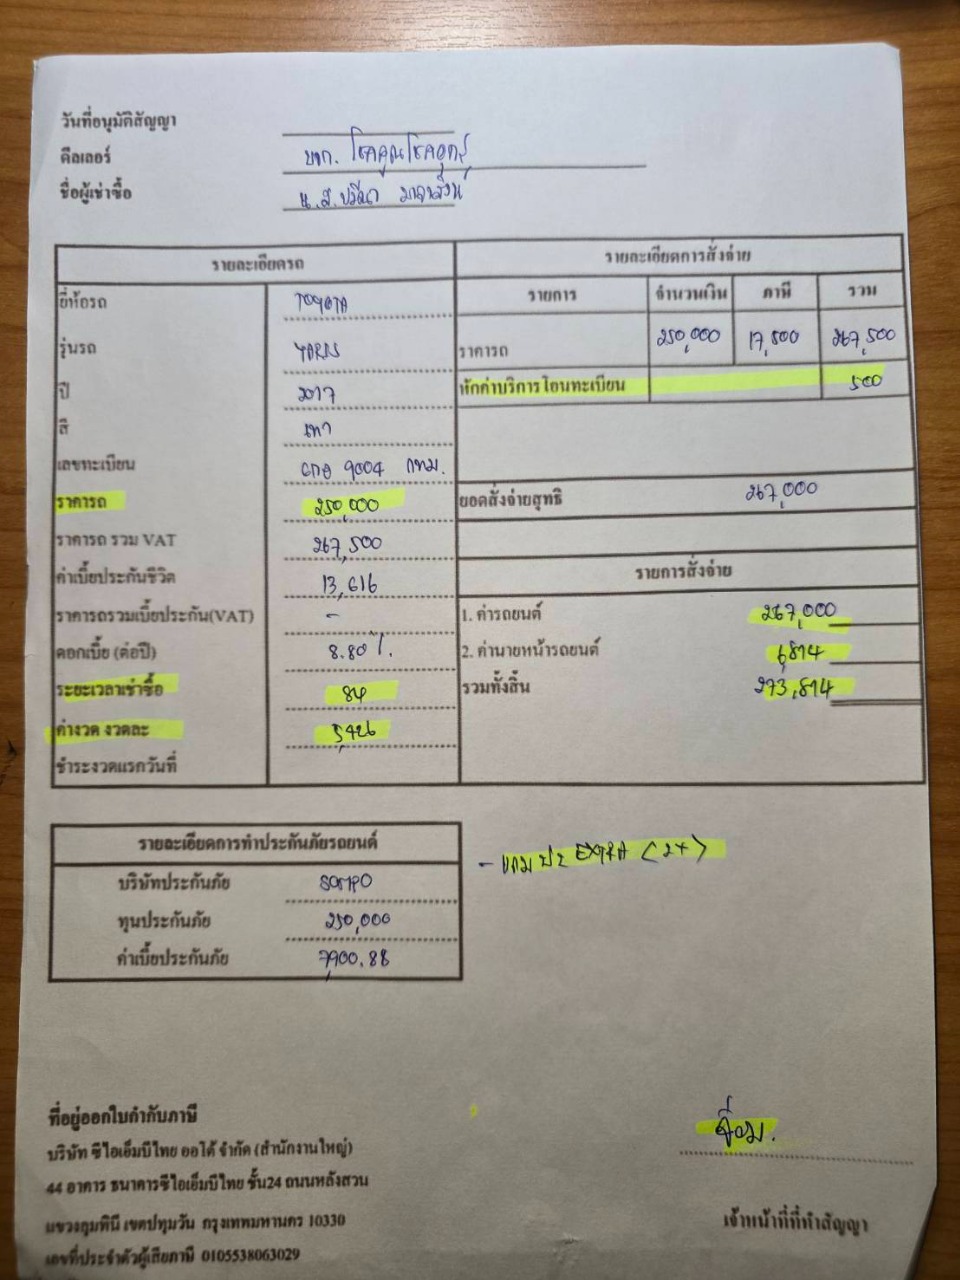 วันที่อนุมัติสัญญา
ดีลเลอร์ บจก. โชคคูณโชค
ชื่อผู้เช่าซื้อ น.ส.ปวีณา
รายละเอียดรถ
ยี่ห้อรถ TOYOTA
รุ่นรถ YARIS
ปี 2017
สี เทา
เลขทะเบียน 9004 กทม.
ราคารถ 250,000
ราคารถ รวม VAT 267,500
ค่าเบี้ยประกันชีวิต 13,616
ราคารถรวมเบี้ยประกัน(VAT) -
ดอกเบี้ย (ต่อปี) 8.80 %.
ระยะเวลาเช่าซื้อ 84
ค่างวด งวดละ 5,426
ชำระงวดแรกวันที่
รายละเอียดการสั่งจ่าย
รายการ จำนวนเงิน ภาษี รวม
ราคารถ 250,000 17,500 267,500
หักค่าบริการโอนทะเบียน 500
ยอดสั่งจ่ายสุทธิ 267,000
รายการสั่งจ่าย
1. ค่ารถยนต์ 267,000
2. ค่านายหน้ารถยนต์ 6,814
รวมทั้งสิ้น 273,814
รายละเอียดการทำประกันภัยรถยนต์
บริษัทประกันภัย SOMPO
ทุนประกันภัย 250,000
ค่าเบี้ยประกันภัย 7,900.88
- แถม ปะ EXTRA (2+)
ที่อยู่ออกใบกำกับภาษี
บริษัท ซีไอเอ็มบีไทย ออโต้ จำกัด (สำนักงานใหญ่)
44 อาคาร ธนาคารซีไอเอ็มบีไทย ชั้น24 ถนนหลังสวน
แขวงลุมพินี เขตปทุมวัน กรุงเทพมหานคร 10330
เลขที่ประจำตัวผู้เสียภาษี 0105538063029
เจ้าหน้าที่ที่ทำสัญญา